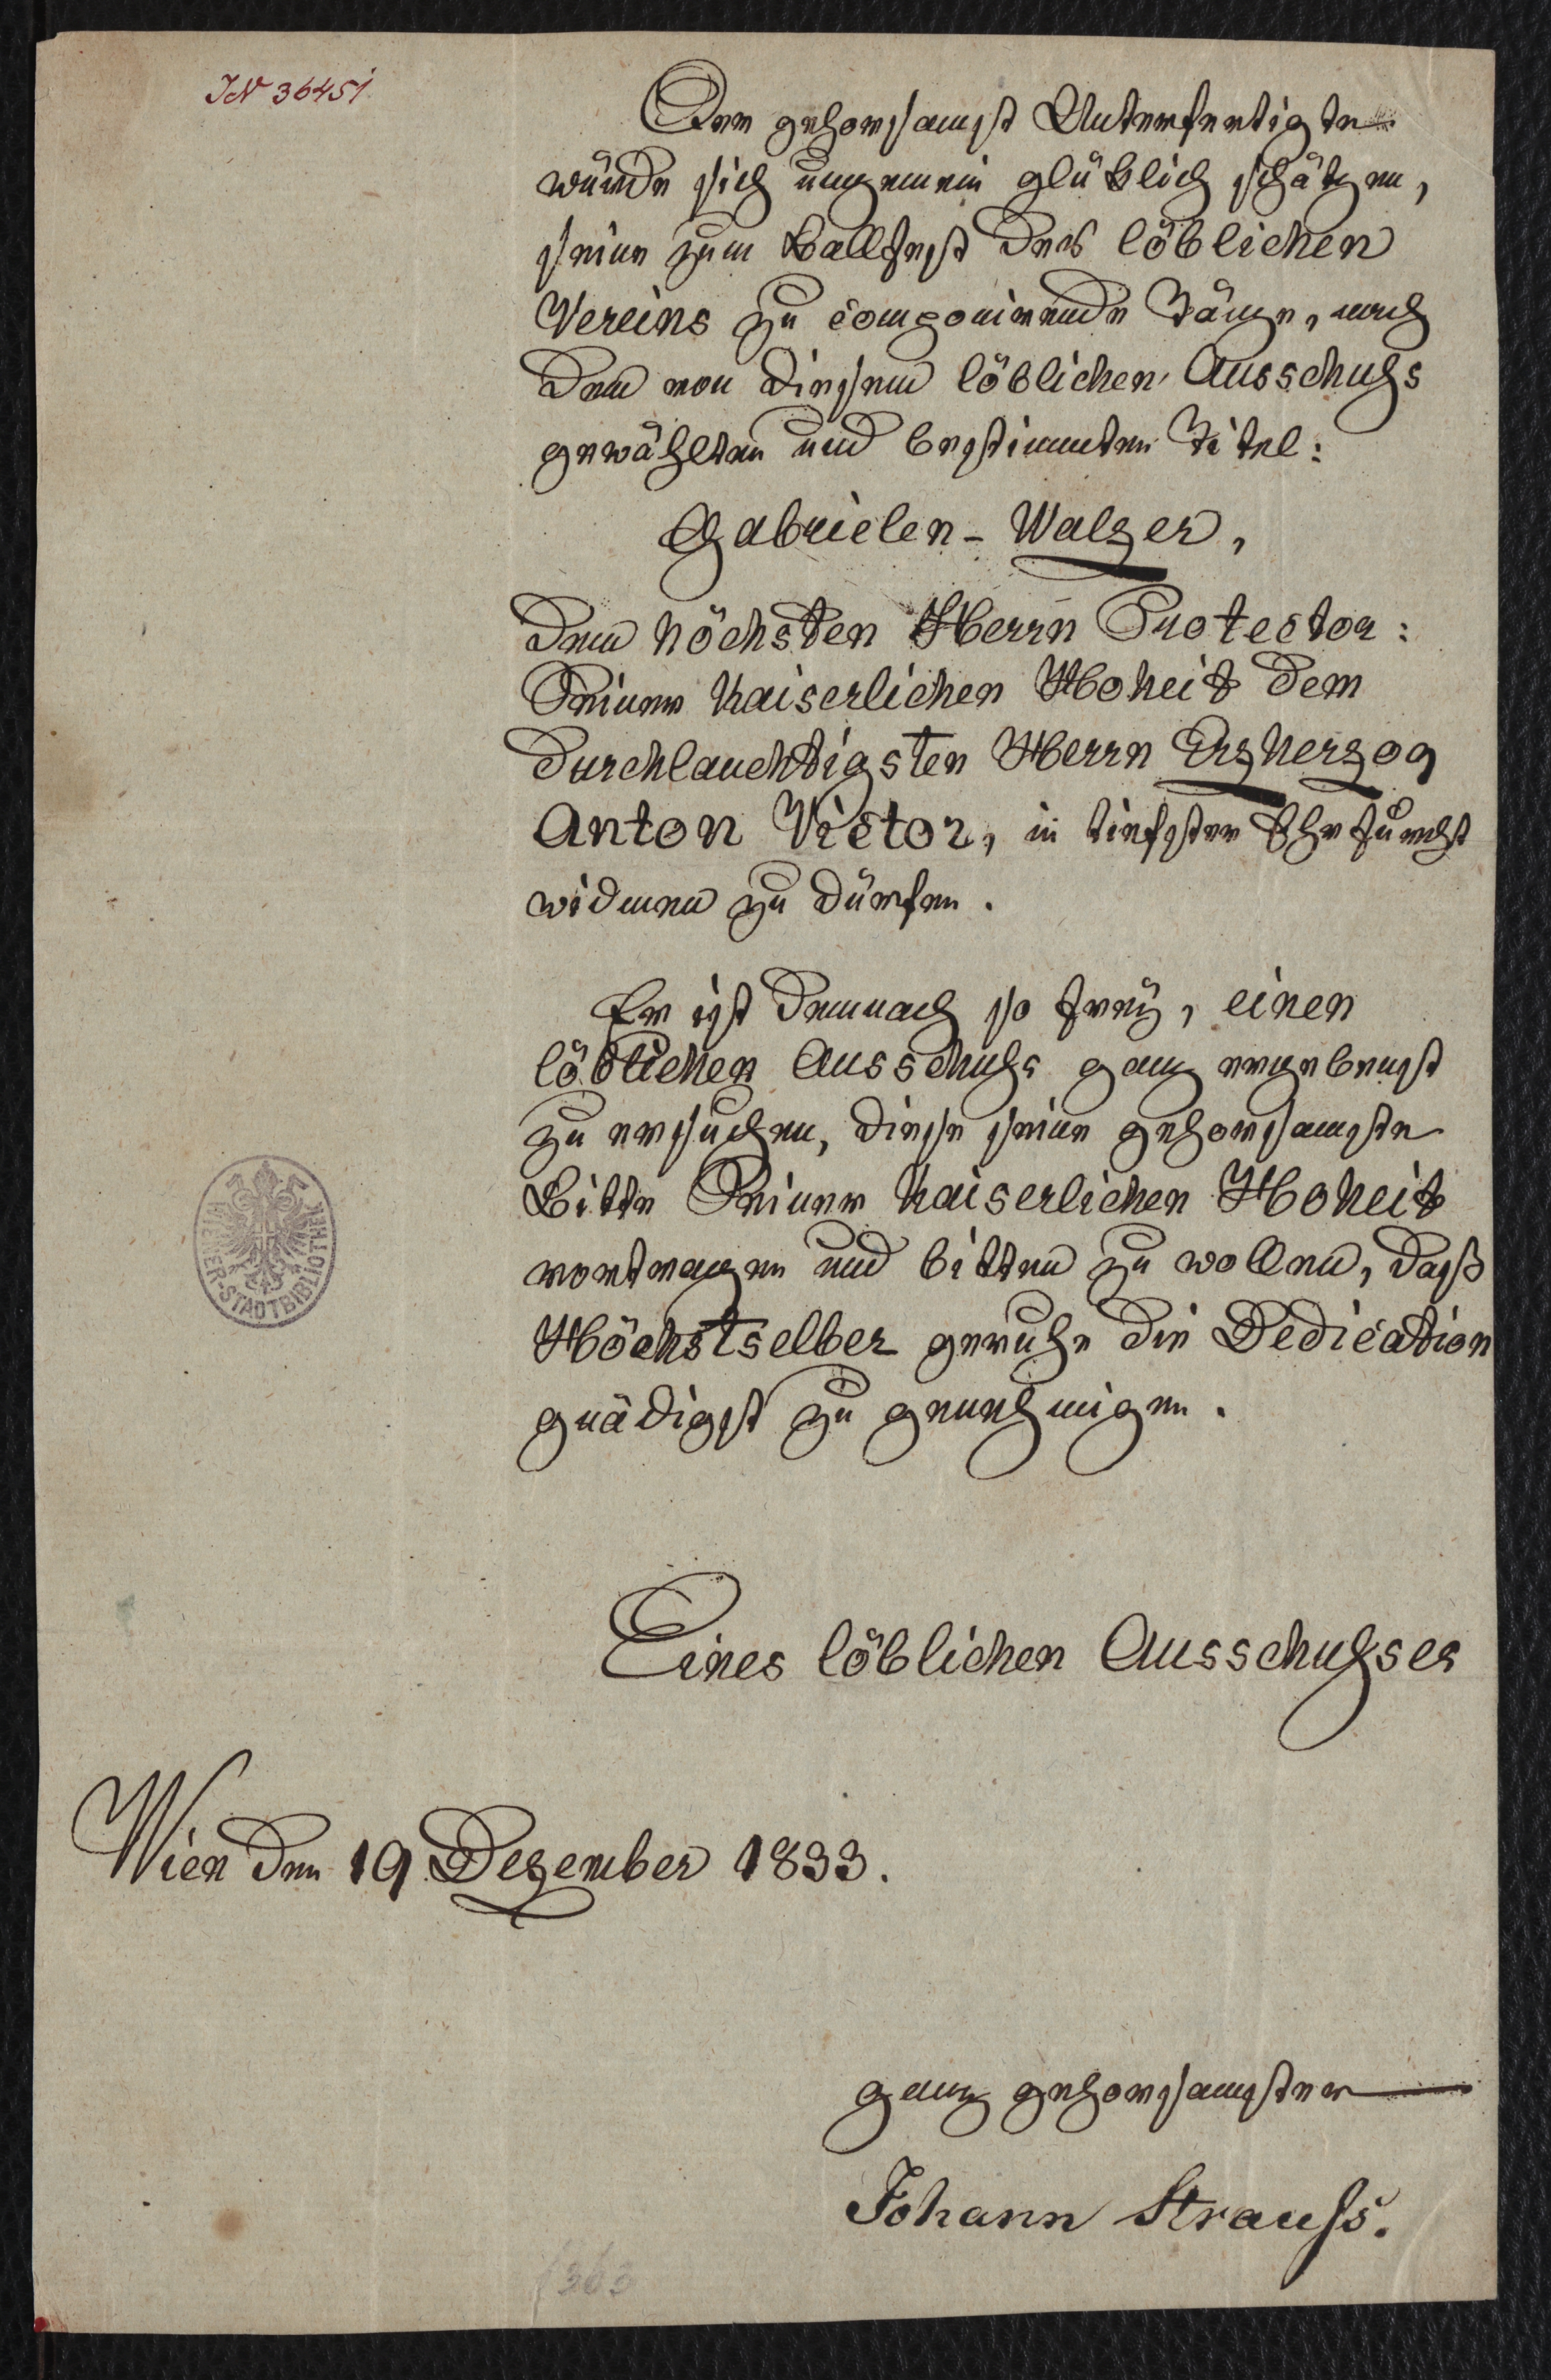 IN 36451
Der gehorsamst Unterfertigte
würde sich ungemein glüklich schätzen,
seine zum Ballfest des löblichen
Vereins zu componirende Tänze, nach
dem von diesem löblichen Ausschuß
gewählten und bestimmten Titel:
Gabrielen-Walzer,
dem höchsten Herrn Protector:
Seiner Kaiserlichen Hoheit dem
durchlauchtigsten Herrn Erzherzog
Anton Victor, in tiefster Ehrfurcht
widmen zu dürfen.
Er ist demnach so freÿ, einen
löblichen Ausschuß ganz ergebenst
zu ersuchen, diese seine gehorsamste
Bitte Seiner Kaiserlichen Hoheit
vortragen und bitten zu wollen, daß
Höchstselber geruhe die Dedication
gnädigst zu genehmigen.
Eines löblichen Ausschußes
Wien den 19 Dezember 1833.
ganz gehorsamster
Johann Strauß.
WIENER-STADTBIBLIOTHEK